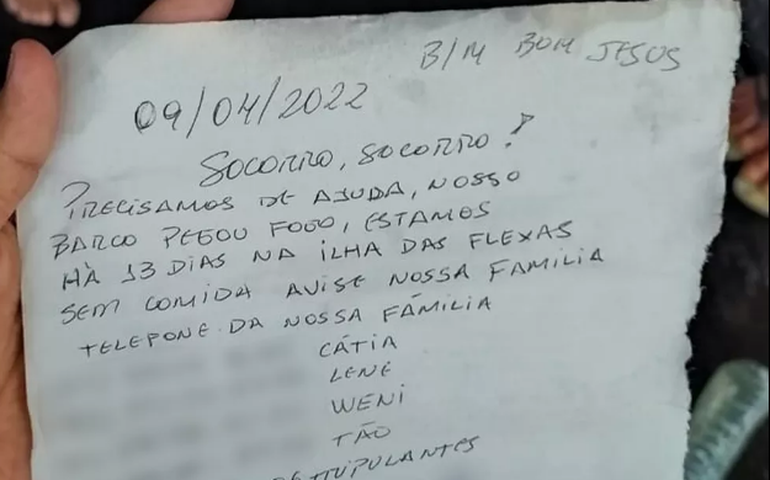 B/M BOM JESUS
09/04/2022
SOCORRO, SOCORRO!
PRECISAMOS DE AJUDA, NOSSO
BARCO PEGOU FOGO, ESTAMOS
HÀ 13 DIAS NA ILHA DAS FLEXAS
SEM COMIDA AVISE NOSSA FAMILIA
TELEPONE DA NOSSA FÁMILIA
CÁTIA
LENE
WENI
TÃO